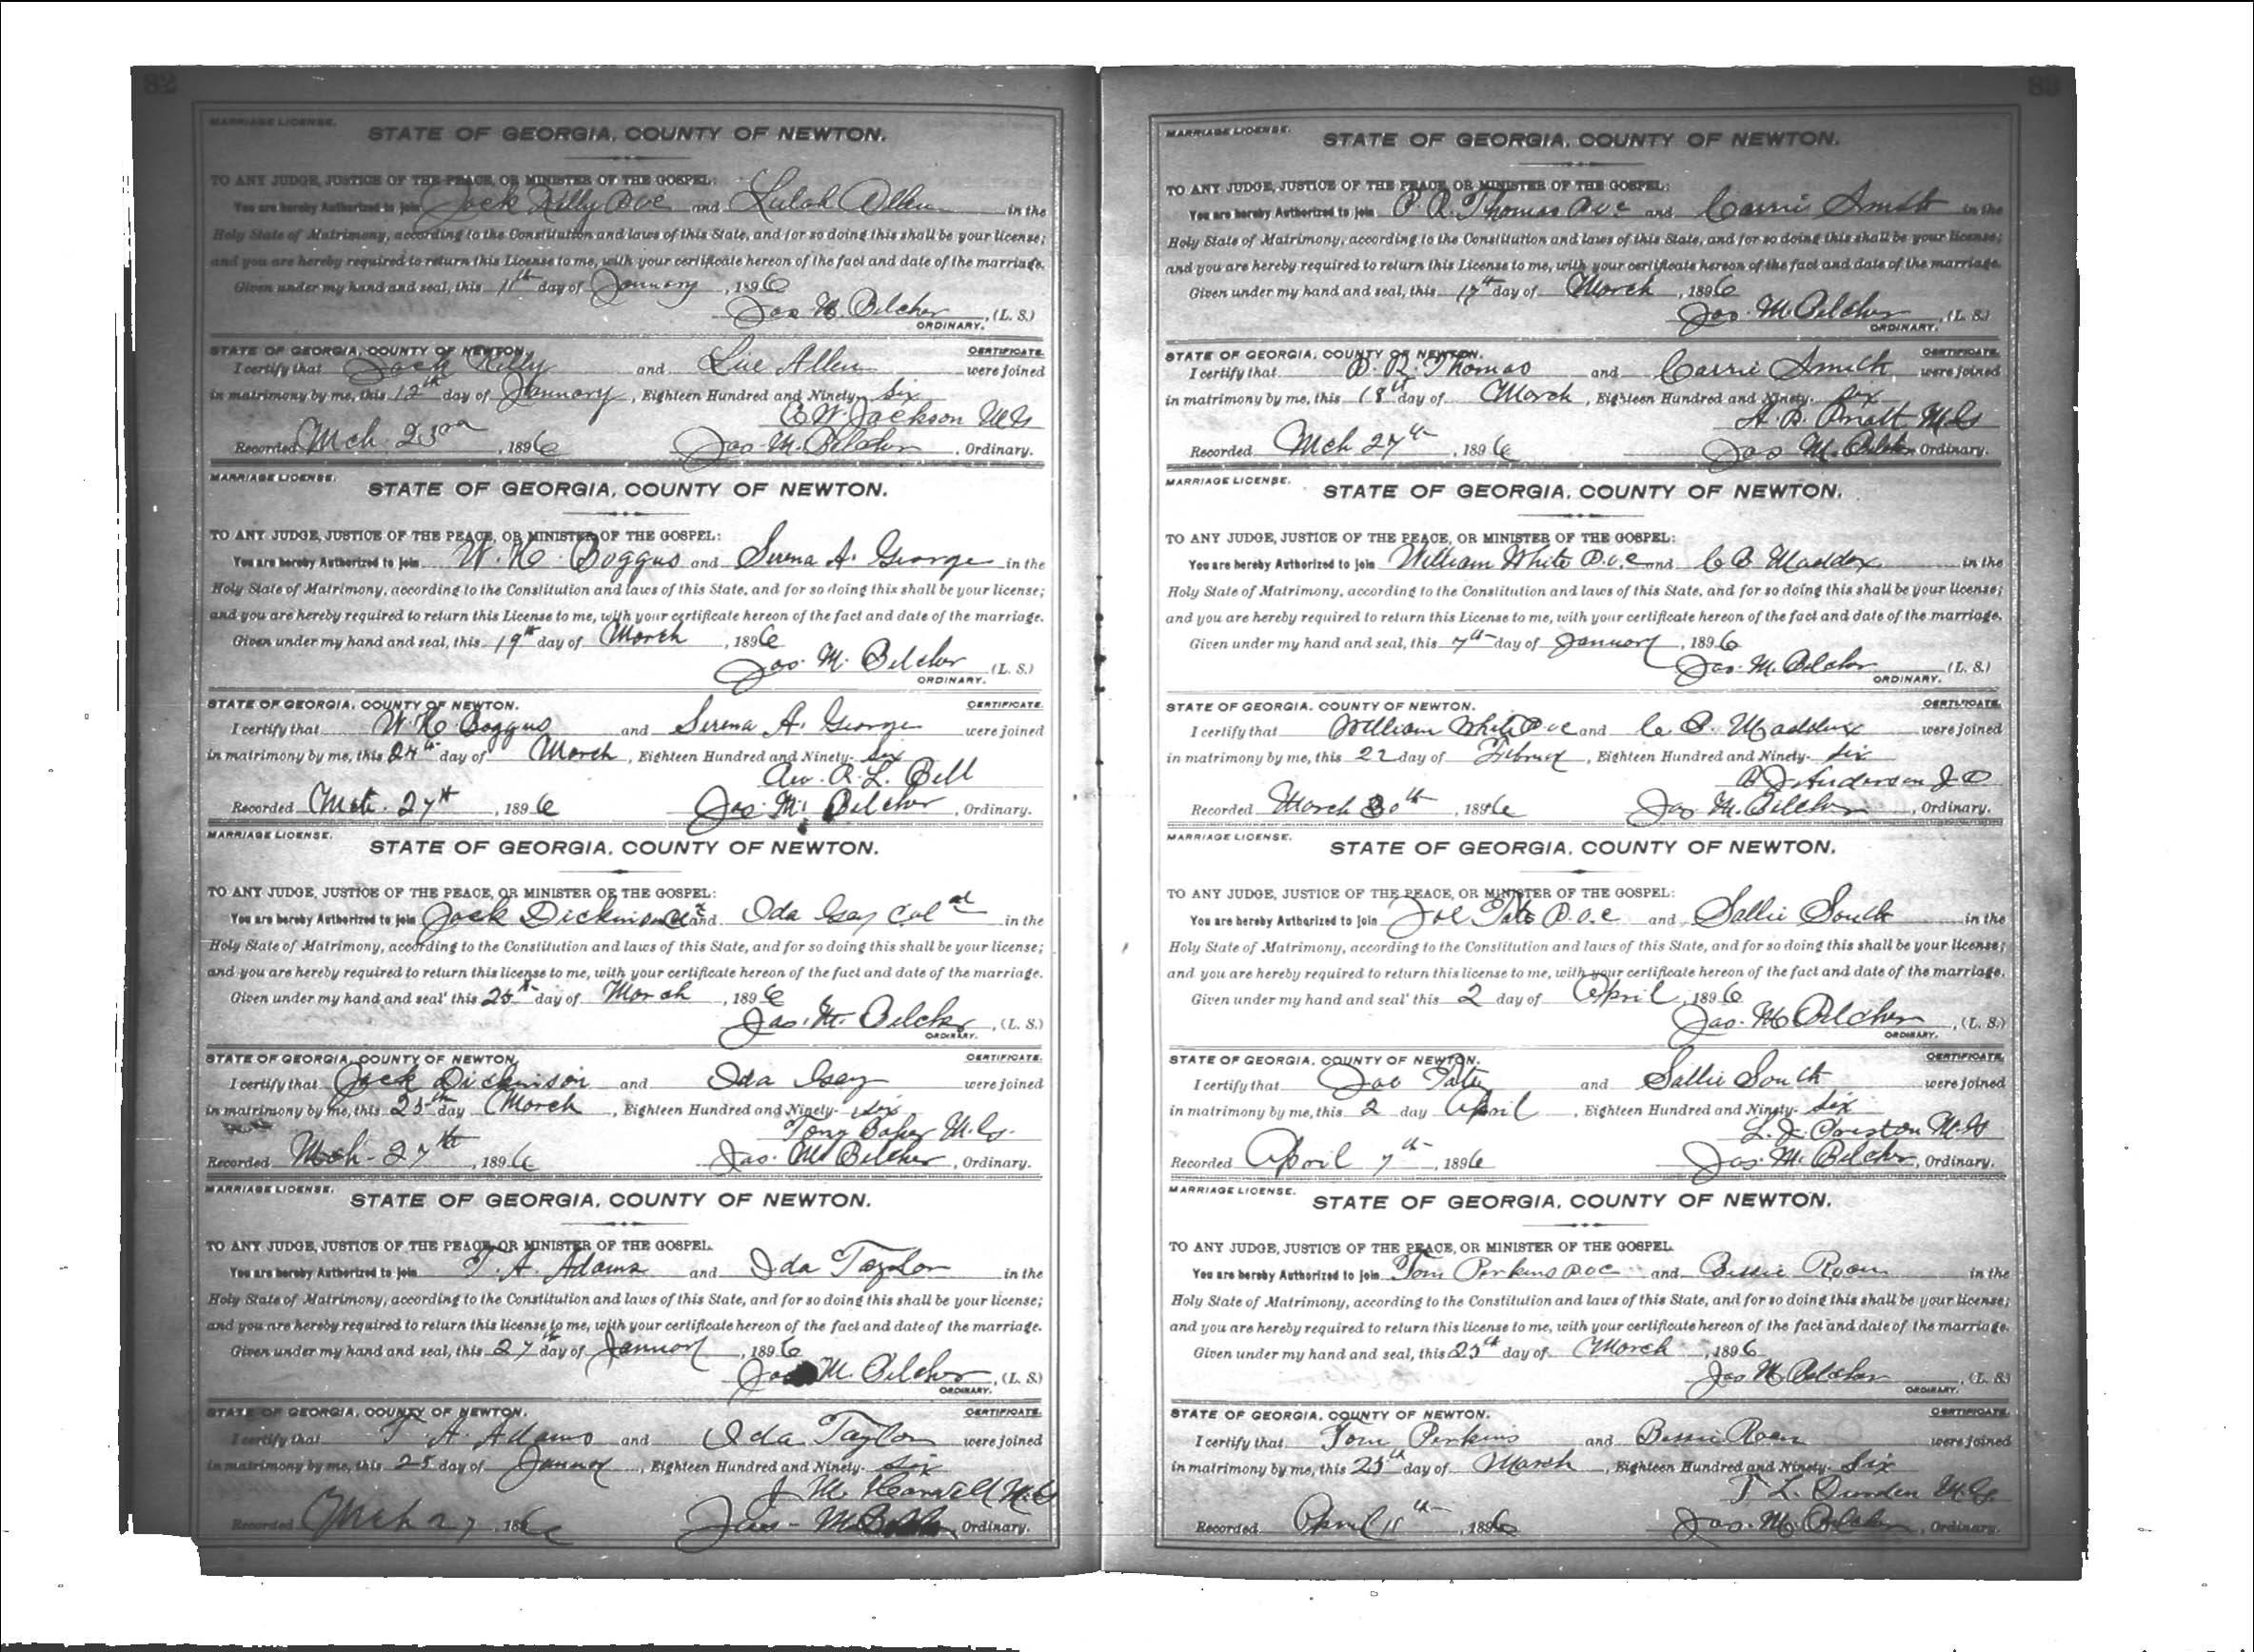 82
MARRIAGE LICENSE.
STATE OF GEORGIA, COUNTY OF NEWTON.
TO ANY JUDGE, JUSTICE OF THE PEACE, OR MINISTER OF THE GOSPEL:
You are hereby Authorized to join Jack Kelly and Lulah Allen in the
Holy State of Matrimony, according to the Constitution and laws of this State, and for so doing this shall be your license;
and you are hereby required to return this License to me, with your certificate hereon of the fact and date of the marriage.
Given under my hand and seal, this 11th day of January, 1896
Jas M. Belcher, (L. S.)
ORDINARY.
STATE OF GEORGIA, COUNTY OF NEWTON. CERTIFICATE.
I certify that Jack Kelly and Allen were joined
in matrimony by me, this 12th day of January, Eighteen Hundred and Ninety- Six
E. W. Jackson MG
Recorded Mch. 23rd, 1896 Jas M. Belcher, Ordinary.
MARRIAGE LICENSE.
STATE OF GEORGIA, COUNTY OF NEWTON.
TO ANY JUDGE, JUSTICE OF THE PEACE, OR MINISTER OF THE GOSPEL:
You are hereby Authorized to join W. H. Boggus and Serena A. George in the
Holy State of Matrimony, according to the Constitution and laws of this State, and for so doing this shall be your license;
and you are hereby required to return this License to me, with your certificate hereon of the fact and date of the marriage.
Given under my hand and seal, this 19th day of March, 1896
Jas. M. Belcher (L. S.)
ORDINARY.
STATE OF GEORGIA, COUNTY OF NEWTON. CERTIFICATE.
I certify that W. H. Boggus and Serena A. George were joined
in matrimony by me, this 24th day of March, Eighteen Hundred and Ninety- Six
L. Bell
Recorded Mch. 27th, 1896 Jas. M. Belcher, Ordinary.
MARRIAGE LICENSE.
STATE OF GEORGIA, COUNTY OF NEWTON.
TO ANY JUDGE, JUSTICE OF THE PEACE, OR MINISTER OF THE GOSPEL:
You are hereby Authorized to join Jack Dickinson and Ida Col in the
Holy State of Matrimony, according to the Constitution and laws of this State, and for so doing this shall be your license;
and you are hereby required to return this license to me, with your certificate hereon of the fact and date of the marriage.
Given under my hand and seal' this 25th day of March, 1896
Jas. M. Belcher, (L. S.)
ORDINARY.
STATE OF GEORGIA, COUNTY OF NEWTON. CERTIFICATE.
I certify that Jack Dickinson and Ida were joined
in matrimony by me, this 25th day March, Eighteen Hundred and Ninety- Six
Tony Baker M.G.
Recorded Mch- 27th, 1896 Jas. M Belcher, Ordinary.
MARRIAGE LICENSE.
STATE OF GEORGIA, COUNTY OF NEWTON.
TO ANY JUDGE, JUSTICE OF THE PEACE, OR MINISTER OF THE GOSPEL.
You are hereby Authorized to join T. A. Adams and Ida Taylor in the
Holy State of Matrimony, according to the Constitution and laws of this State, and for so doing this shall be your license;
and you are hereby required to return this license to me, with your certificate hereon of the fact and date of the marriage.
Given under my hand and seal, this 27th day of January, 1896
Jas M. Belcher, (L. S.)
ORDINARY.
STATE OF GEORGIA, COUNTY OF NEWTON. CERTIFICATE.
I certify that T. A. Adams and Ida Taylor were joined
in matrimony by me, this 25 day of January, Eighteen Hundred and Ninety- Six
J. M. M.G
Recorded Mch 27, 1896 Jas- M Belcher, Ordinary.
83
MARRIAGE LICENSE.
STATE OF GEORGIA, COUNTY OF NEWTON.
TO ANY JUDGE, JUSTICE OF THE PEACE, OR MINISTER OF THE GOSPEL:
You are hereby Authorized to join Thomas and Carrie Smith in the
Holy State of Matrimony, according to the Constitution and laws of this State, and for so doing this shall be your license;
and you are hereby required to return this License to me, with your certificate hereon of the fact and date of the marriage.
Given under my hand and seal, this 17th day of March, 1896
Jas. M. Belcher, (L. S.)
ORDINARY.
STATE OF GEORGIA, COUNTY OF NEWTON. CERTIFICATE.
I certify that R. Thomas and Carrie Smith were joined
in matrimony by me, this 18th day of March, Eighteen Hundred and Ninety- Six
MG
Recorded Mch 27th, 1896 Jas M. Belcher Ordinary.
MARRIAGE LICENSE.
STATE OF GEORGIA, COUNTY OF NEWTON.
TO ANY JUDGE, JUSTICE OF THE PEACE, OR MINISTER OF THE GOSPEL:
You are hereby Authorized to join William White and C B Maddox in the
Holy State of Matrimony, according to the Constitution and laws of this State, and for so doing this shall be your license;
and you are hereby required to return this License to me, with your certificate hereon of the fact and date of the marriage.
Given under my hand and seal, this 7th day of January, 1896
Jas. M. Belcher (L. S.)
ORDINARY.
STATE OF GEORGIA, COUNTY OF NEWTON. CERTIFICATE.
I certify that William White and C. B. Maddox were joined
in matrimony by me, this 22 day of, Eighteen Hundred and Ninety- Six
Anderson J.P.
Recorded March 30th, 1896 Jas M. Belcher, Ordinary.
MARRIAGE LICENSE.
STATE OF GEORGIA, COUNTY OF NEWTON.
TO ANY JUDGE, JUSTICE OF THE PEACE, OR MINISTER OF THE GOSPEL:
You are hereby Authorized to join Joe and Sallie in the
Holy State of Matrimony, according to the Constitution and laws of this State, and for so doing this shall be your license;
and you are hereby required to return this license to me, with your certificate hereon of the fact and date of the marriage.
Given under my hand and seal' this 2 day of April, 1896
Jas. M. Belcher, (L. S.)
ORDINARY.
STATE OF GEORGIA, COUNTY OF NEWTON. CERTIFICATE.
I certify that Joe and Sallie South were joined
in matrimony by me, this 2 day April, Eighteen Hundred and Ninety- Six
M.G
Recorded April 7th, 1896 Jas. M. Belcher, Ordinary.
MARRIAGE LICENSE.
STATE OF GEORGIA, COUNTY OF NEWTON.
TO ANY JUDGE, JUSTICE OF THE PEACE, OR MINISTER OF THE GOSPEL.
You are hereby Authorized to join Tom Perkins and Bessie in the
Holy State of Matrimony, according to the Constitution and laws of this State, and for so doing this shall be your license;
and you are hereby required to return this license to me, with your certificate hereon of the fact and date of the marriage.
Given under my hand and seal, this 25th day of March, 1896
Jas M Belcher, (L. S.)
ORDINARY.
STATE OF GEORGIA, COUNTY OF NEWTON. CERTIFICATE.
I certify that Tom Perkins and Bessie were joined
in matrimony by me, this 25th day of March, Eighteen Hundred and Ninety- Six
T. L. M.G.
Recorded April 11th, 1896 Jas. M. Belcher, Ordinary.